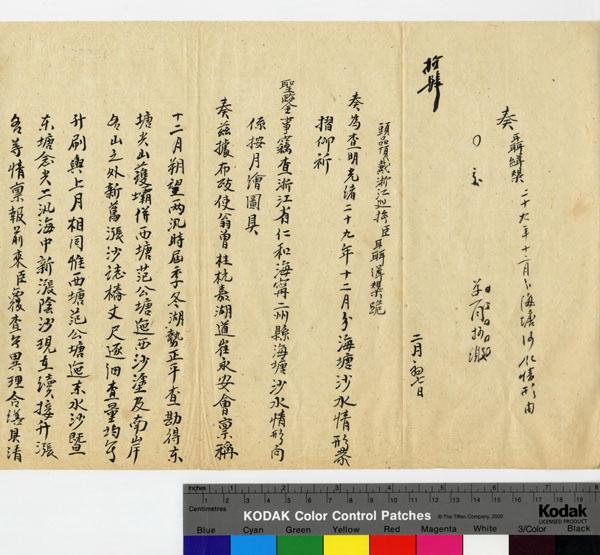 奏
聶緝槼 二十九年十二月分海塘沙水情形由
二月初七日
拾肆
頭品頂戴浙江巡撫臣聶緝槼跪
奏為查明光緒二十九年十二月分海塘沙水情形恭
摺仰祈
聖鑒事竊查浙江省仁和海甯二州縣海塘沙水情形向
係按月繪圖具
奏茲據布政使翁曾桂杭嘉湖道崔永安會稟稱
十二月朔望兩汛時屆季冬潮勢正平查勘得東
塘尖山護壩併西塘范公塘迤西沙塗及南岸
各山之外新舊漲沙誌樁丈尺逐細查量均與
升刷與上月相同惟西塘范公塘迤東水沙暨
東塘念尖二汛海中新漲陰沙現在續接升漲
各等情稟報前來臣覆查無異理合繕具清
inches 1 2 3 4 5 6 7 8
Centimetres 1 2 3 4 5 6 7 8 9 10 11 12 13 14 15 16 17 18 19
KODAK Color Control Patches
© The Tiffen Company, 2000
Kodak
LICENSED PRODUCT
Blue Cyan Green Yellow Red Magenta White 3/Color Black